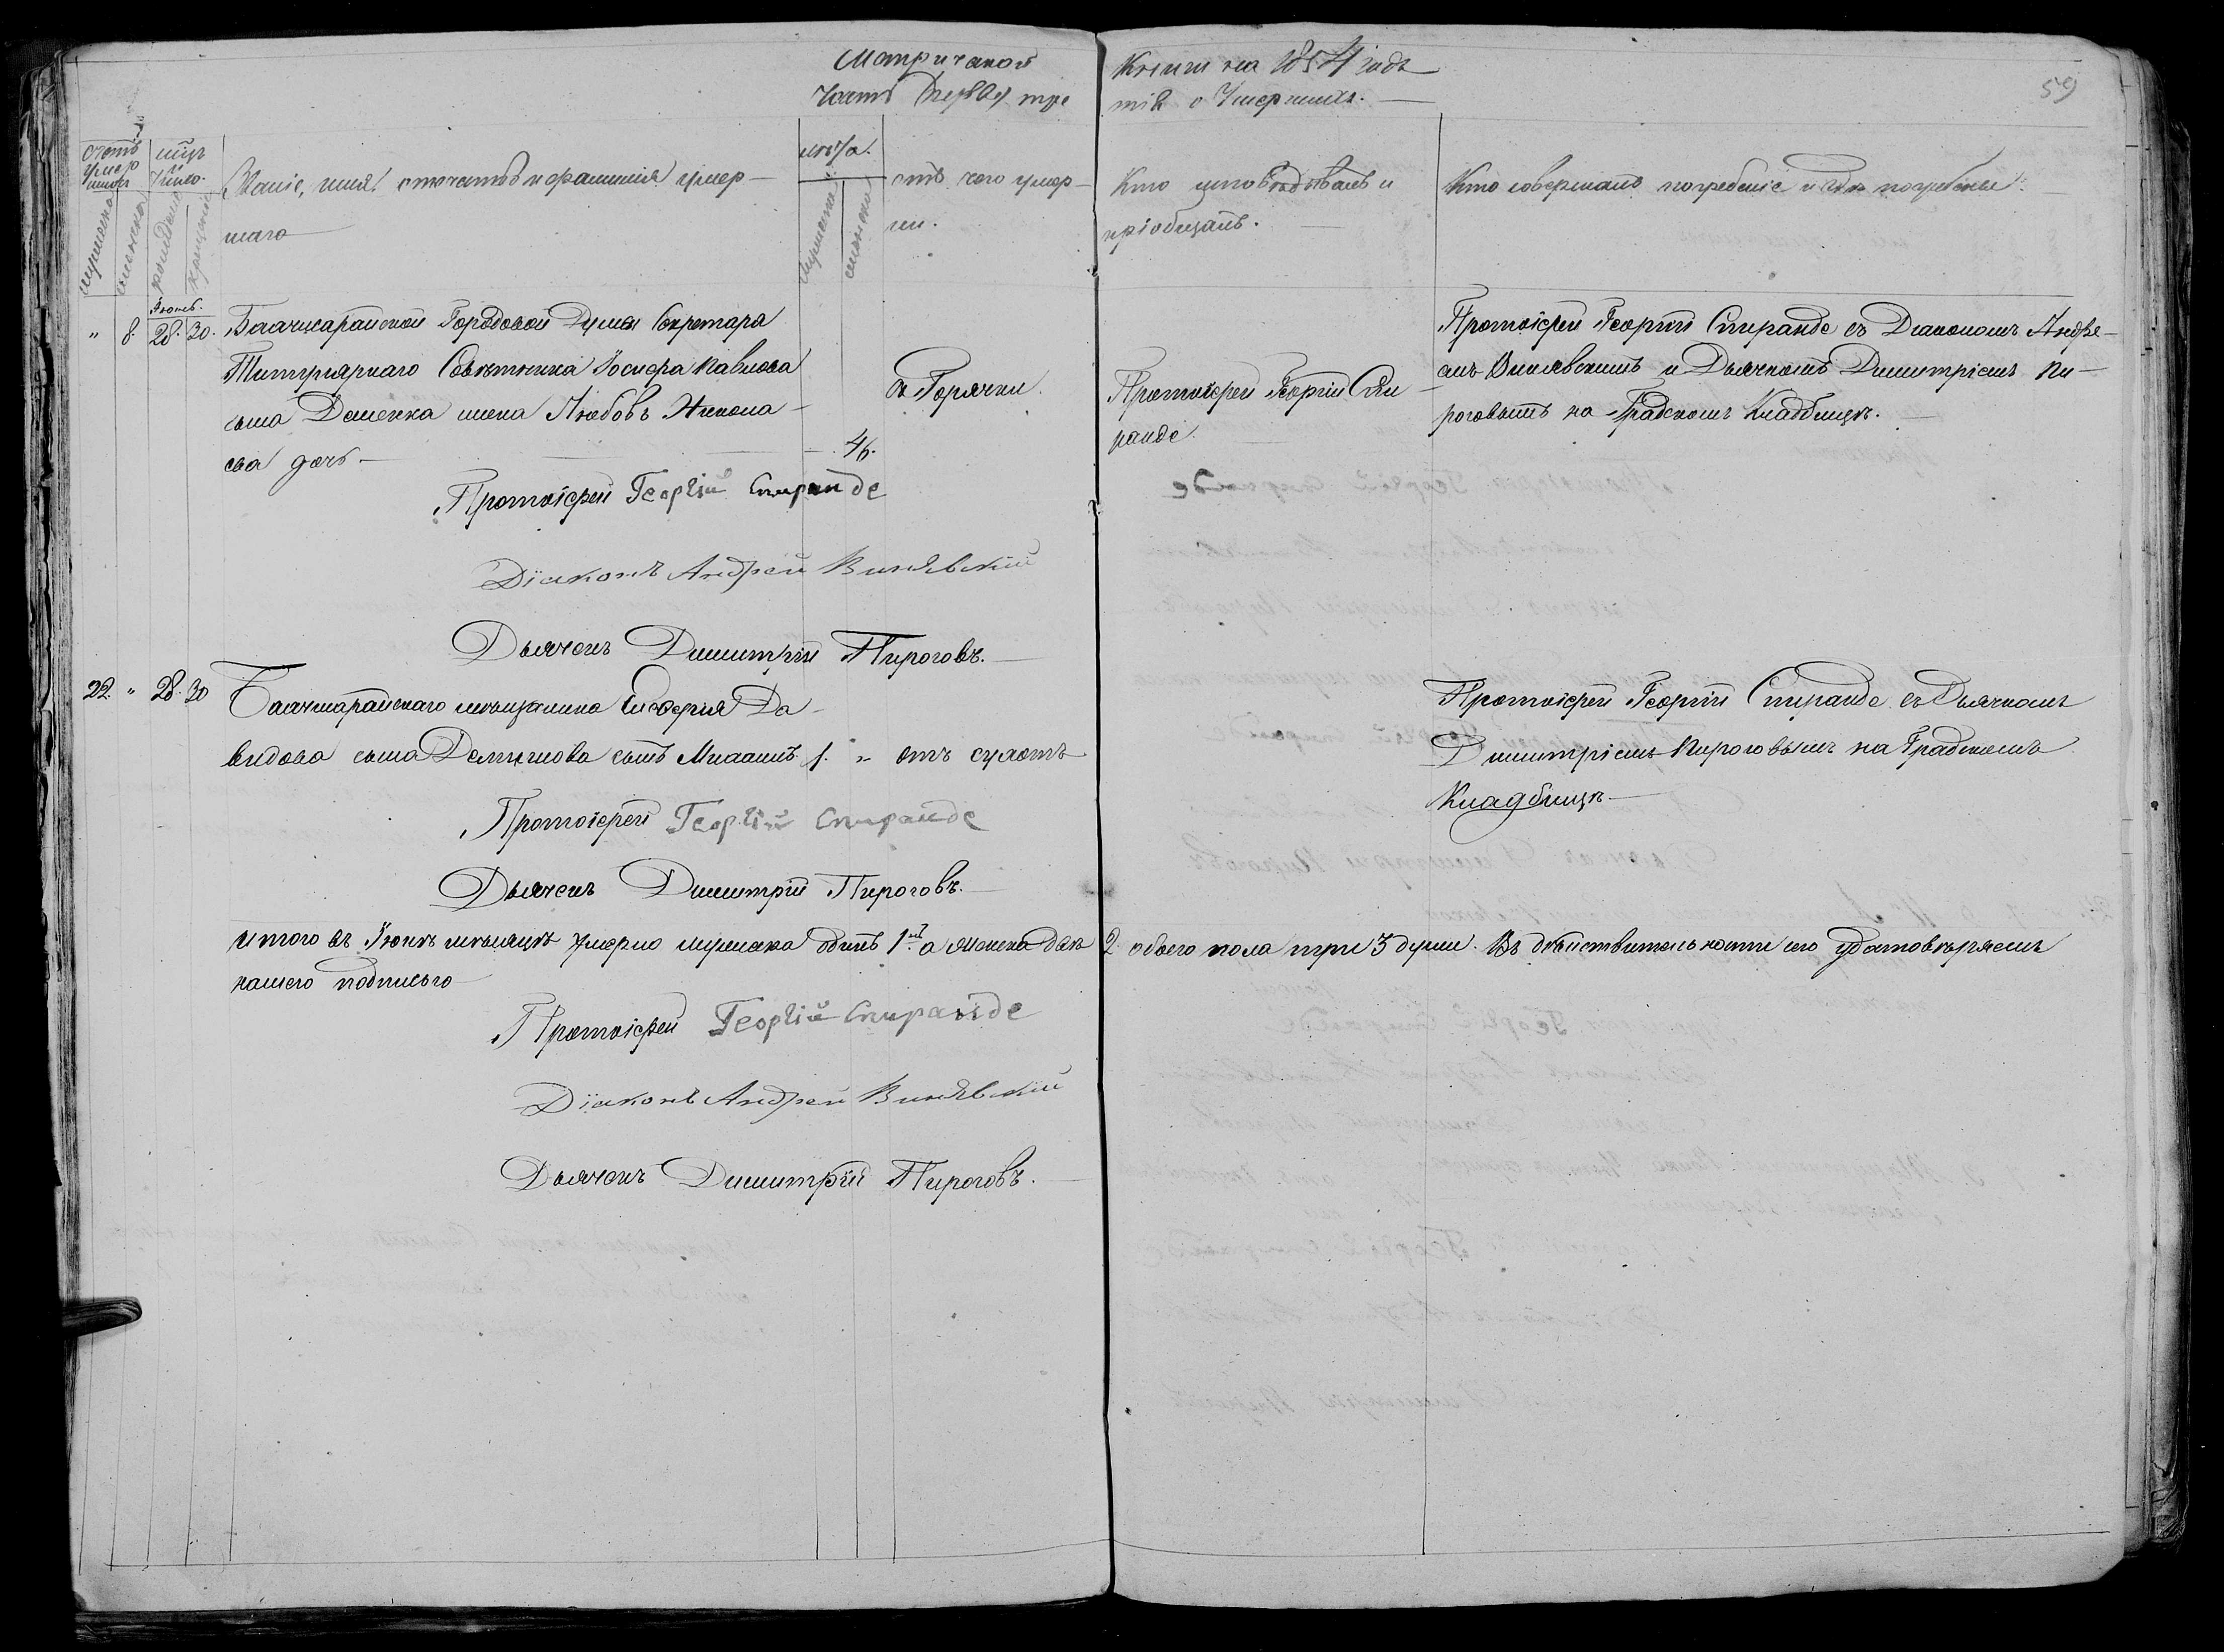 Метрической Книги на 1854 годъ
Часть Первая тре тія о Умершихъ.
59
Счетъ умер шихъ
мужеска
женска
мцъ и Число.
рожденія
крещенія
Званіе, имя, отечество и фамилія умер-
шаго
лѣта.
мужеска
женска
отъ чего умер-
ли.
Кто исповѣдывалъ и
пріобщалъ.
Кто совершалъ погребеніе и гдѣ погребены.
Іюнь.
" 8. 28. 30. Бахчисарайской Городовой Думы Секретара
Титулярнаго Совѣтника Іосифа Павлова
сына Доменка жена Любовь Никола-
ева дочь 46.
въ Горячки.
Протоіерей Георгій Спи
ранде.
Протоіерей Георгій Спиранде съ Діакономъ Андре-
емъ Винявскимъ и Дьячкомъ Димитріемъ Пи-
роговымъ на Градскомъ Кладбищѣ.
Протоіерей Георгій Спиранде
Діаконъ Андрей Винявскій
Дьячекъ Димитрій Пироговъ.
22. " 28. 30 Бахчисарайскаго мѣщанина Елевферія Да-
видова сына сынъ Михаилъ. 1. " отъ сухотъ
Протоіерей Георгій Спиранде съ Дьячкомъ
Димитріемъ Пироговымъ на Градскомъ
Кладбищѣ
Протоіерей Георгій Спиранде
Дьячекъ Димитрій Пироговъ.
Итого въ Іюнѣ мѣсяцѣ умерло мужеска одинъ 1й а женска двѣ 2 обоего пола три 3 души. Въ дѣйствительности сего удостовѣряемъ
нашего подписью
Протоіерей Георгій Спиранде
Діаконъ Андрей Винявскій
Дьячекъ Димитрій Пироговъ.